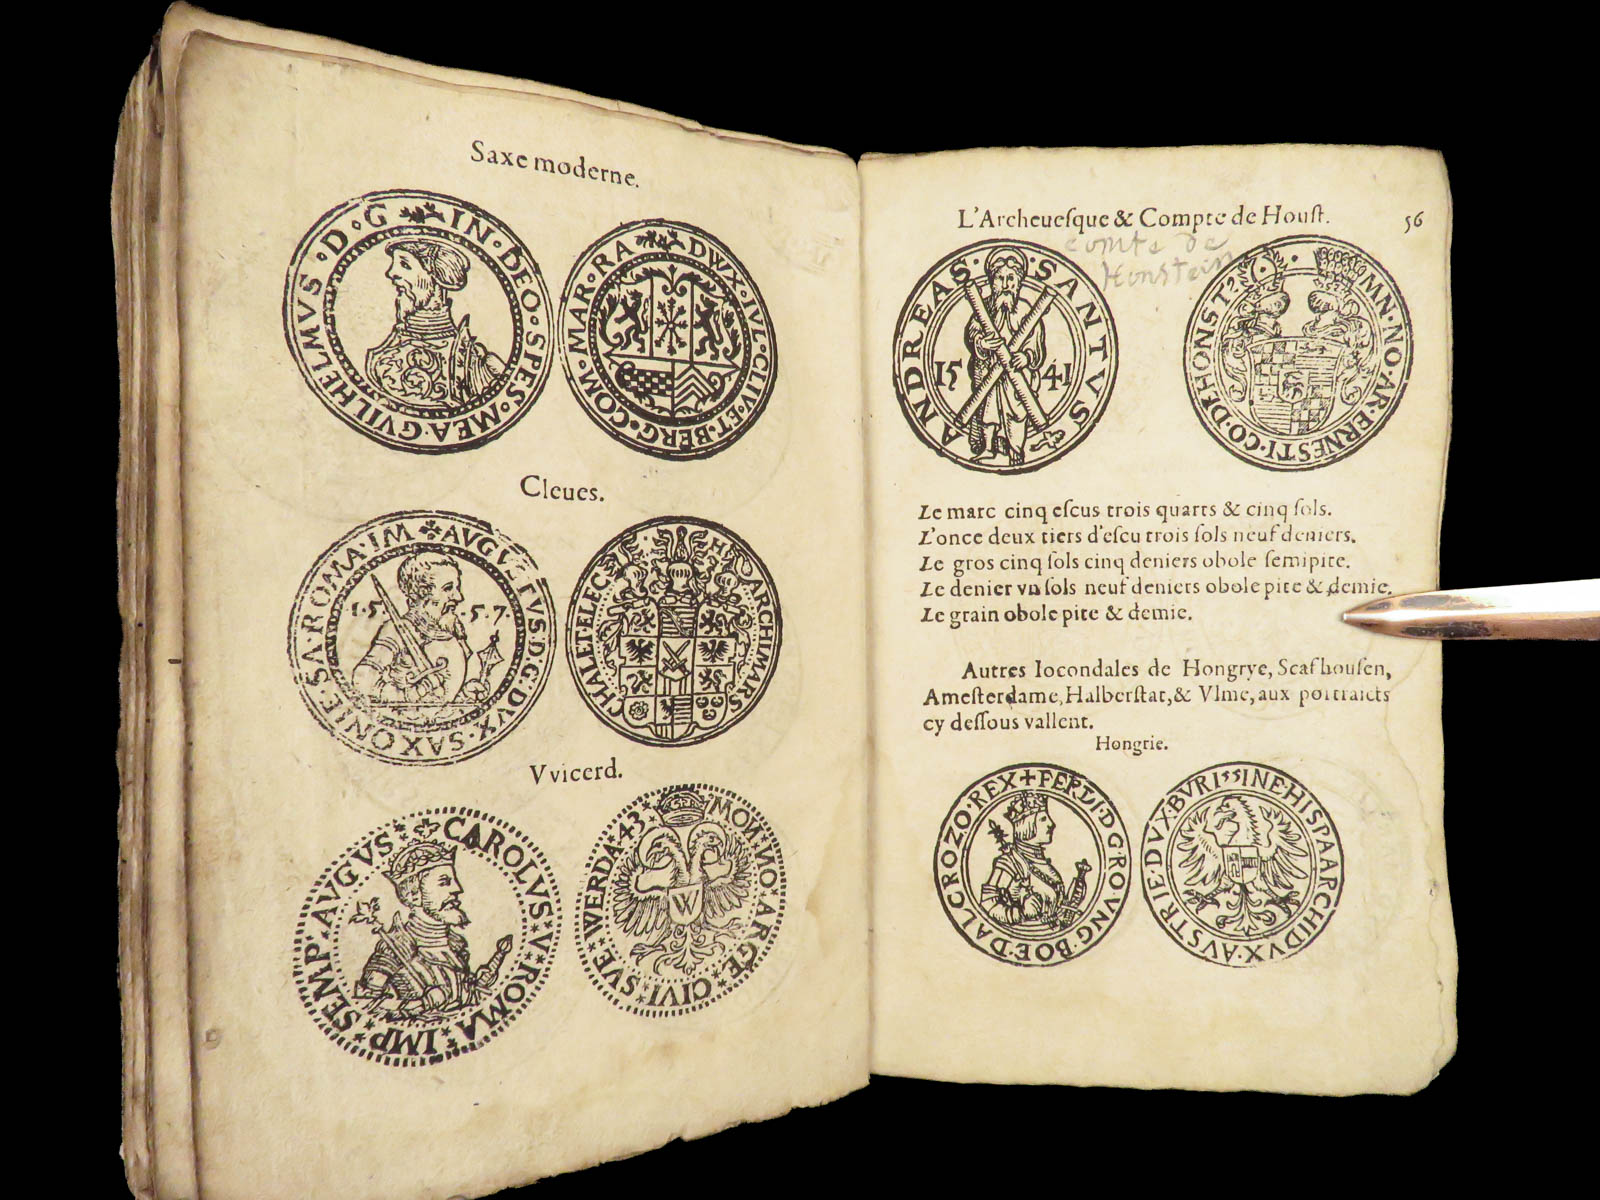 Saxe moderne.
GVILHELMVS · D · G · IN · DEO · SPES · MEA ·
DWX · IVL · CLIV · ET · BERG · COM · MAR · RA
Cleues.
AVGVSTVS · D : G · DVX · SAXONIE · SA · ROMA · IM
1·5 ·5·7·
ARCHIMARS CHAL · ET · ELEC
Vvicerd.
CAROLVS · V · ROMA · IMP · SEMP · AVGVS
MON · NO · ARGE CIVI · SVE · WERDA · 43
W
L'Archeueſque & Compte de Houſt. 56
comte de
Honstein
SANTVS ANDREAS
15 41
MN · NO · AR · ERNESTI · CO · DE HONST
Le marc cinq eſcus trois quarts & cinq ſols.
L'once deux tiers d'eſcu trois ſols neuf deniers.
Le gros cinq ſols cinq deniers obole ſemipite.
Le denier vn ſols neuf deniers obole pite & demie.
Le grain obole pite & demie.
Autres Iocondales de Hongrye, Scafhouſen,
Ameſterdame, Halberſtat, & Vlme, aux portraicts
cy deſſous vallent.
Hongrie.
FERDI · D · G RO · VNG · BOE · DAL CROZO · REX
INF HISPA ARCHIDVX · AVSTRIE · DVX · BVRI